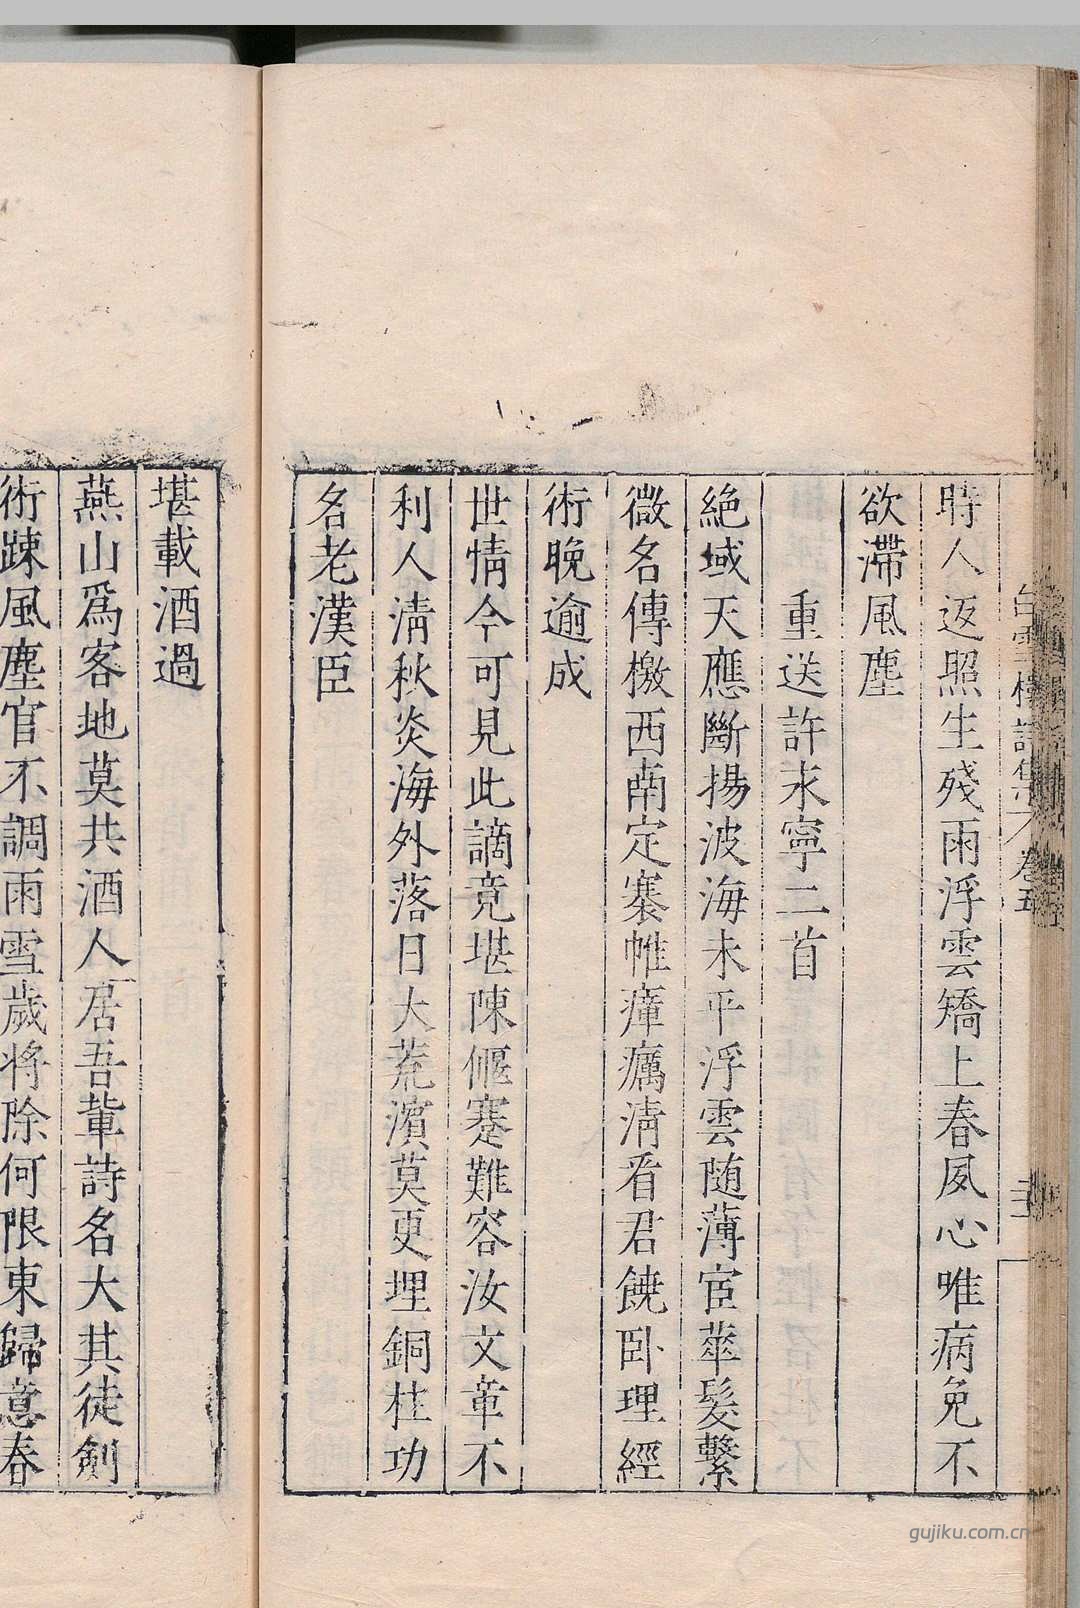 白雪樓詩集 卷五
時人返照生殘雨浮雲矯上春夙心唯病免不
欲滯風塵
重送許永寧二首
絕域天應斷揚波海未平浮雲随薄宦華髮繫
微名傳檄西南定褰帷瘴癘清看君饒卧理經
術晚逾成
世情今可見此謫竟堪陳偃蹇難容汝文章不
利人清秋炎海外落日大荒濱莫更埋銅柱功
名老漢臣
堪載酒過
燕山爲客地莫共酒人居吾輩詩名大其徒劍
術踈風塵官不調雨雪歲將除何限東歸意春
gujiku.com.cn